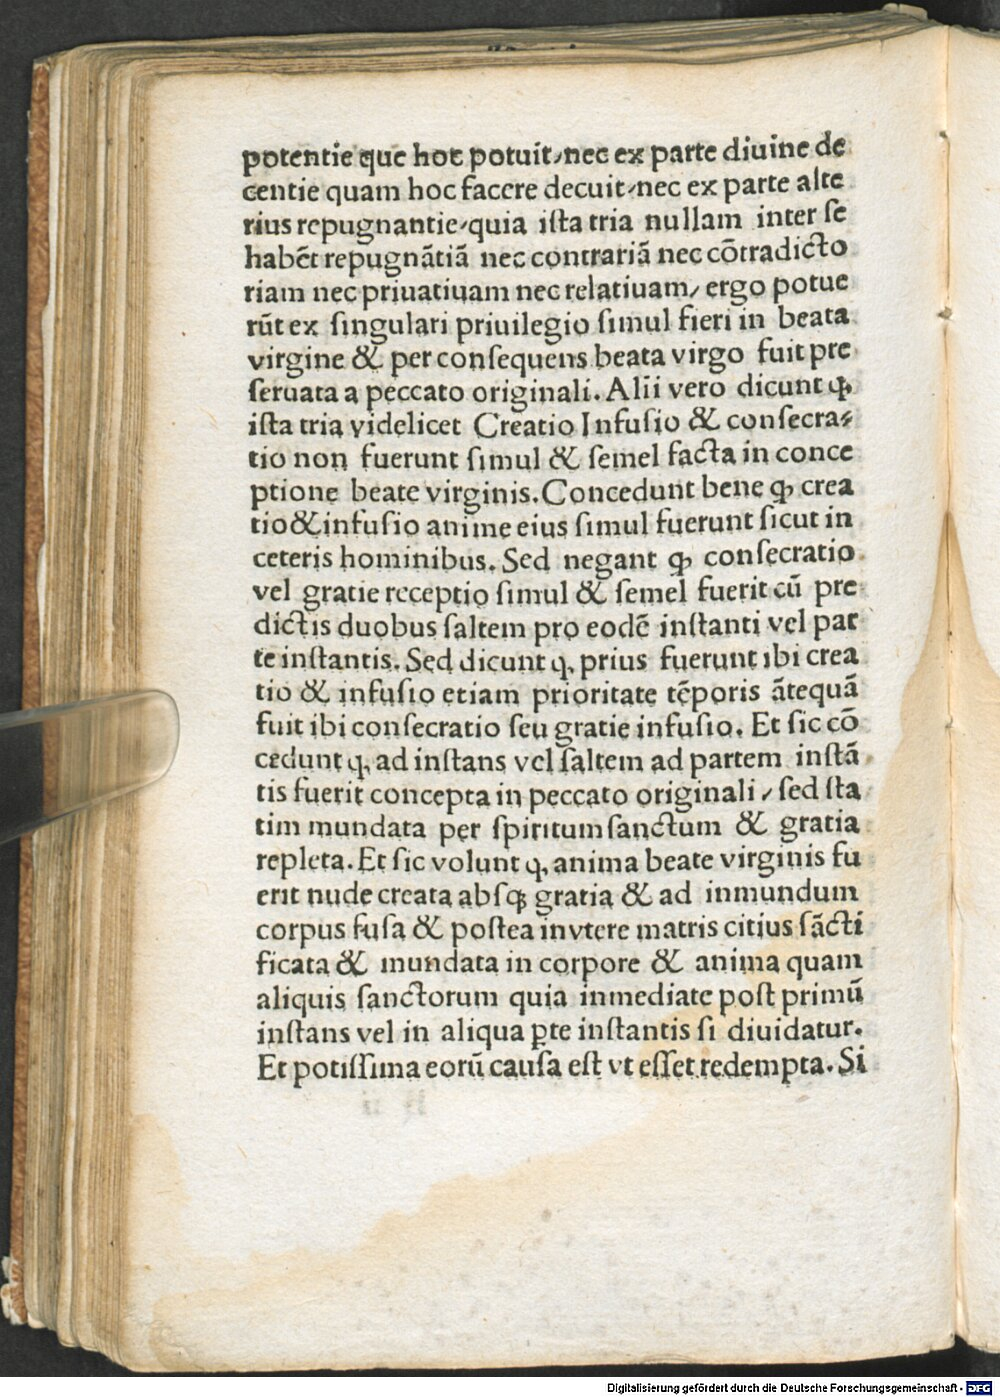 potentie que hoc potuit/nec ex parte diuine de
centie quam hoc facere decuit/nec ex parte alte
rius repugnantie/quia iſta tria nullam inter ſe
habēt repugnātiā nec contrariā nec cōtradicto
riam nec priuatiuam nec relatiuam/ ergo potue
rūt ex ſingulari priuilegio ſimul fieri in beata
virgine & per conſequens beata virgo fuit pre
ſeruata a peccato originali. Alii vero dicunt ꝙ
iſta tria videlicet Creatio Infuſio & conſecra⸗
tio non fuerunt ſimul & ſemel facta in conce
ptione beate virginis. Concedunt bene ꝙ crea
tio & infuſio anime eius ſimul fuerunt ſicut in
ceteris hominibus. Sed negant ꝙ conſecratio
vel gratie receptio ſimul & ſemel fuerit cū pre
dictis duobus ſaltem pro eodē inſtanti vel par
te inſtantis. Sed dicunt ꝙ prius fuerunt ibi crea
tio & infuſio etiam prioritate tēporis āteguā
fuit ibi conſecratio ſeu gratie infuſio. Et ſic cō
cedunt ꝙ ad inſtans vel ſaltem ad partem inſtā
tis fuerit concepta in peccato originali / ſed ſta
tim mundata per ſpiritum ſanctum & gratia
repleta. Et ſic volunt ꝙ anima beate virginis fu
erit nude creata abſqꝫ gratia & ad inmundum
corpus fuſa & poſtea in vtere matris citius ſācti
ficata & mundata in corpore & anima quam
aliquis ſanctorum quia inmediate poſt primū
inſtans vel in aliqua ꝑte inſtantis ſi diuidatur.
Et potiſſima eorū cauſa eſt vt eſſet redempta. Si
Digitalisierung gefördert durch die Deutsche Forschungsgemeinschaft - DFG